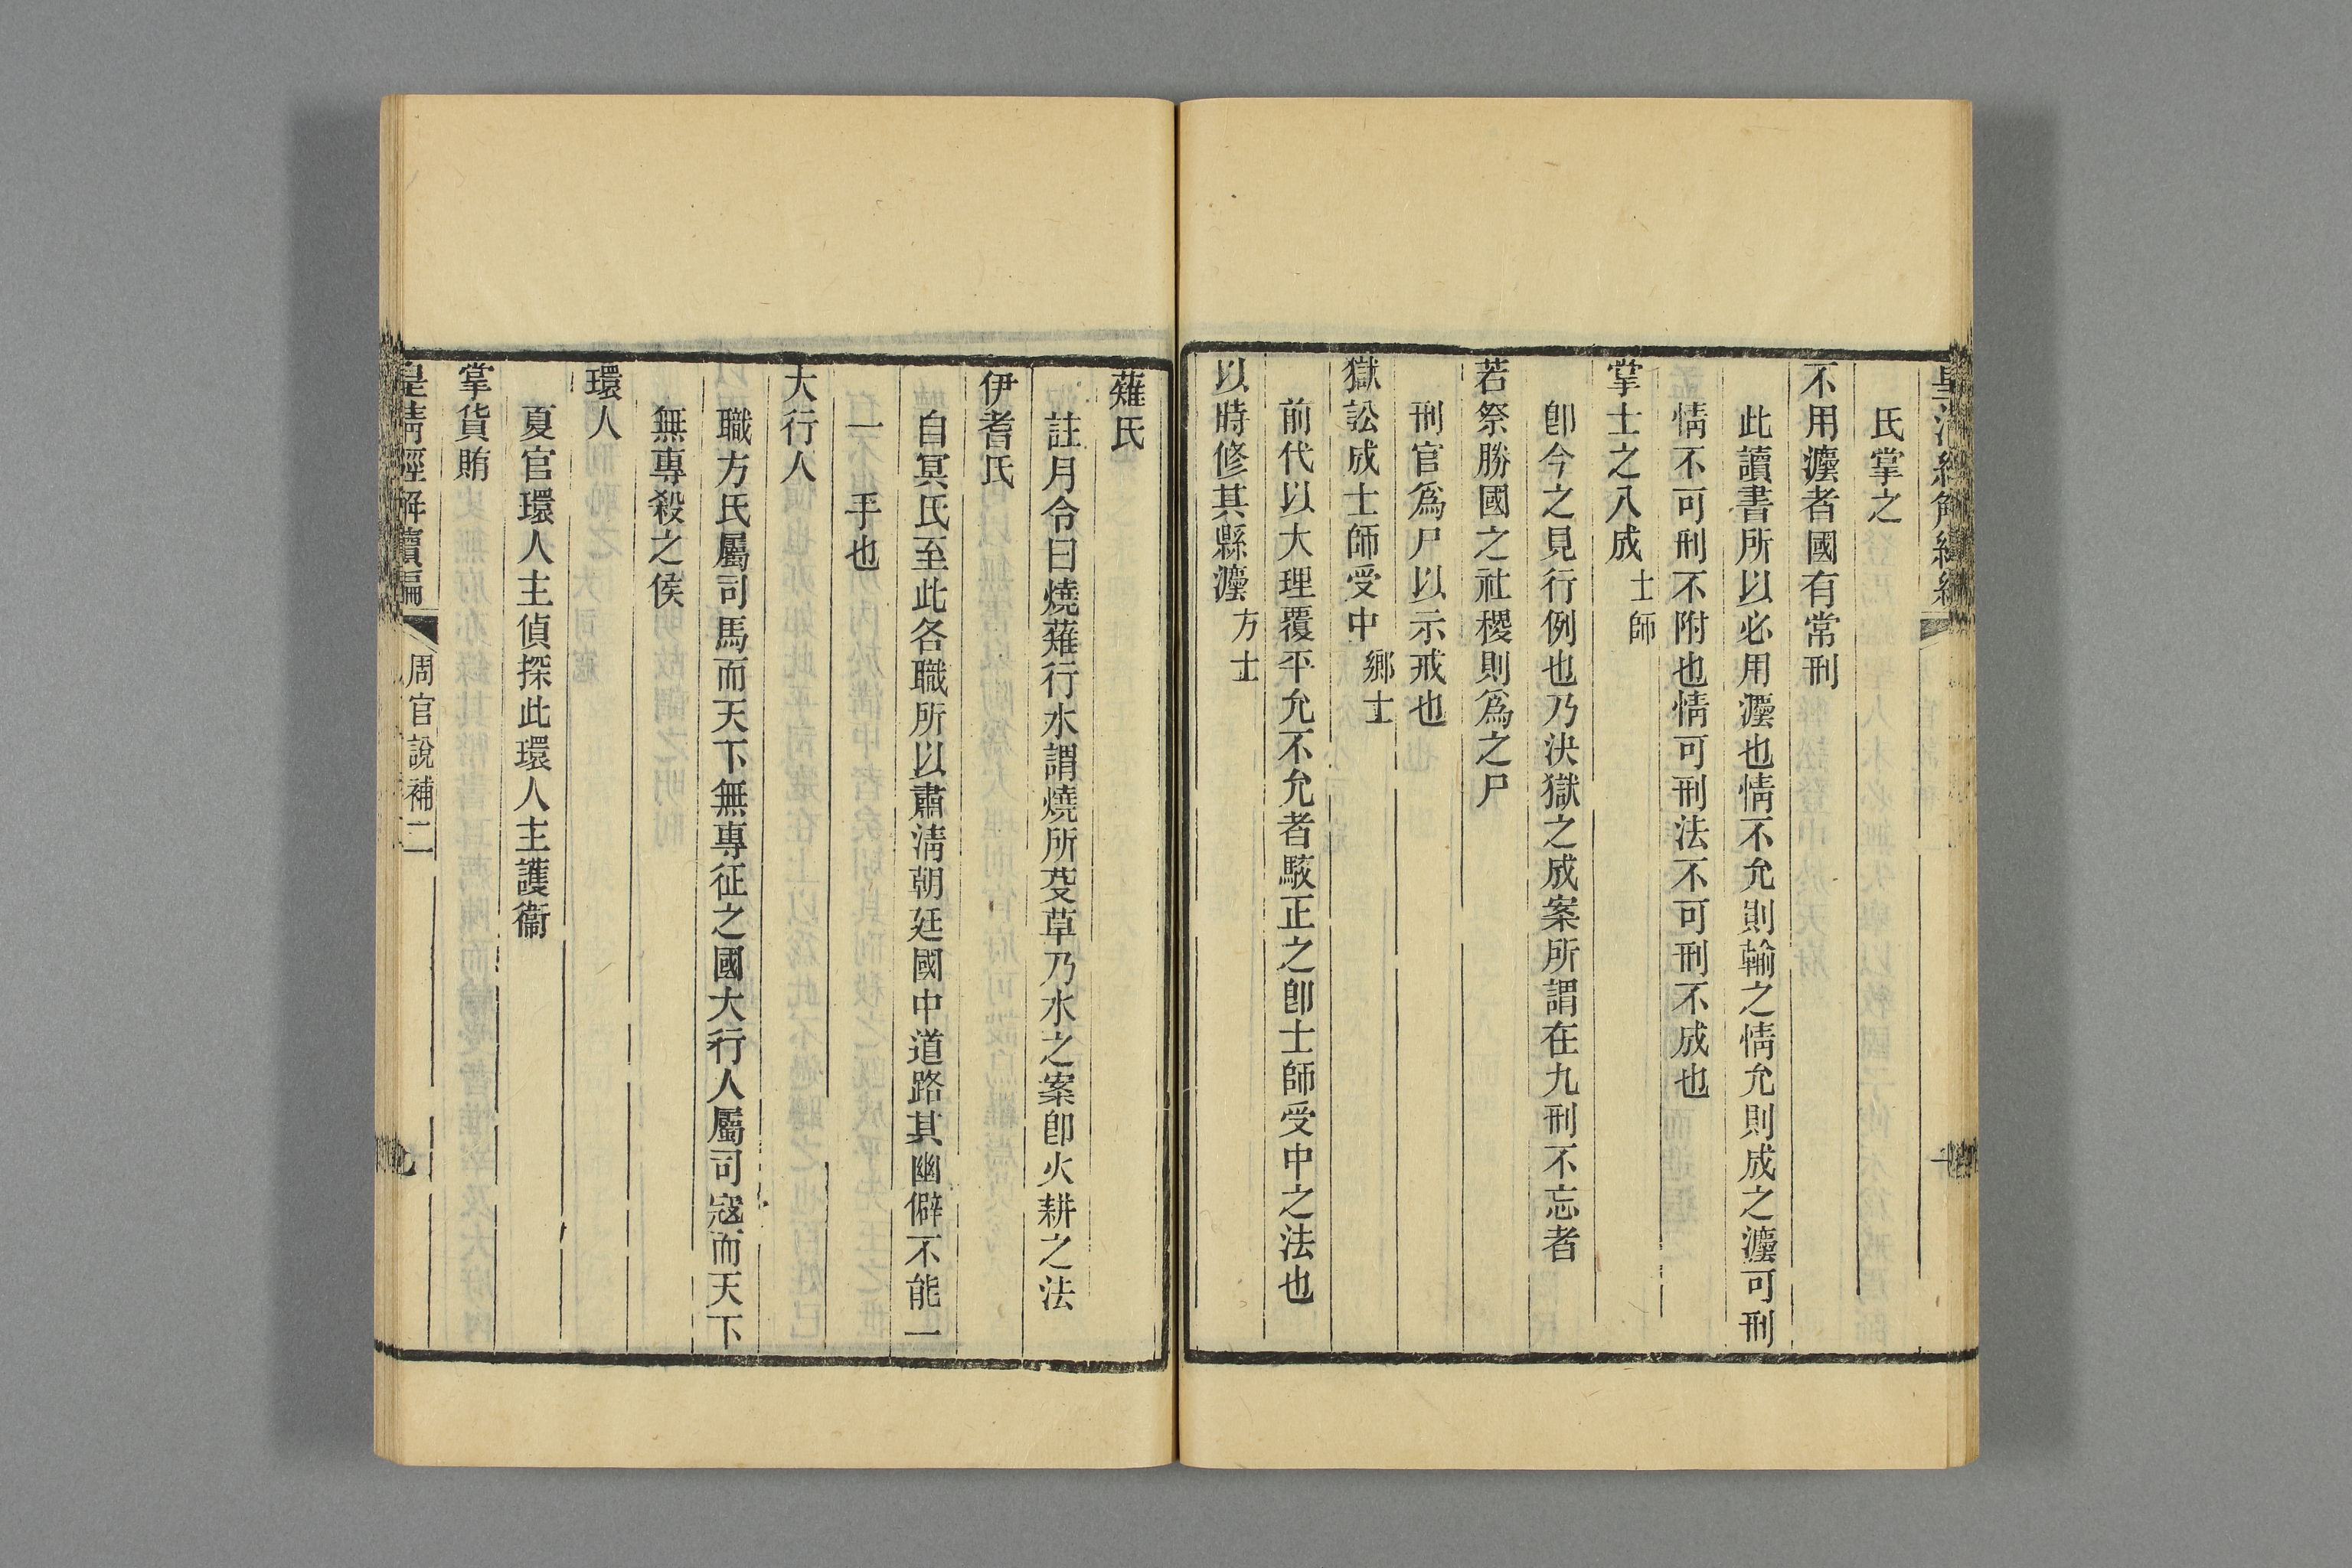 皇清經解續編
氏掌之
不用灋者國有常刑
此讀書所以必用灋也情不允則輸之情允則成之灋可刑
情不可刑刑不附也情可刑法不可刑刑不成也
掌士之八成士師
卽今之見行例也乃決獄之成案所謂在九刑不忘者
若祭勝國之社稷則爲之尸
刑官爲尸以示戒也
獄訟成士師受中鄉士
前代以大理覆平允不允者駁正之卽士師受中之法也
以時修其縣灋方士
薙氏
註月令曰燒薙行水謂燒所芟草乃水之案卽火耕之法
伊耆氏
自冥氏至此各職所以肅淸朝廷國中道路其幽僻不能一
一手也
大行人
職方氏屬司馬而天下無專征之國大行人屬司寇而天下
無專殺之侯
環人
夏官環人主偵探此環人主護衞
掌貨賄
皇淸經解續編 周官說補二 九